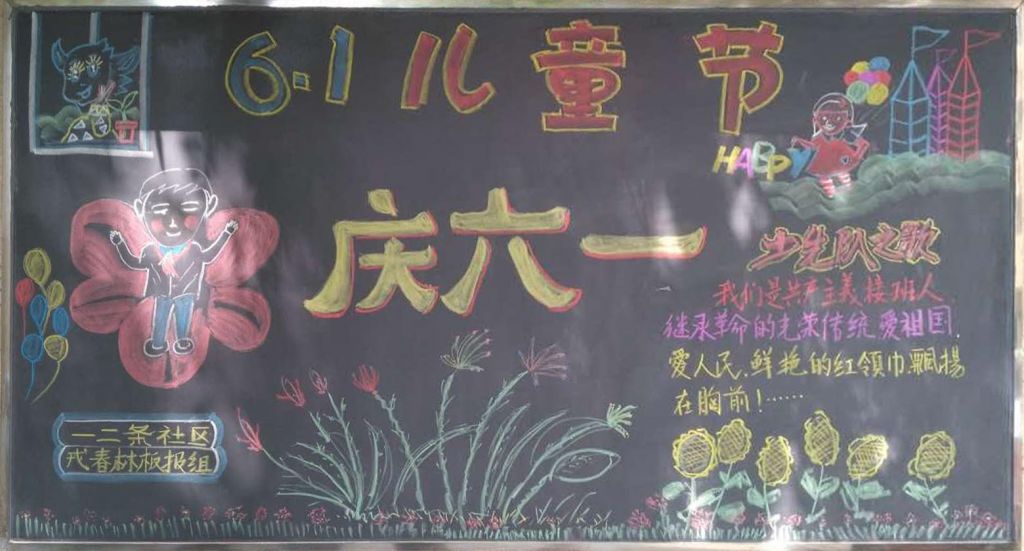 6·1儿童节
HAPPY
庆六一
少先队之歌
我们是共产主义接班人
继录革命的光荣传统爱祖国.
爱人民.鲜艳的红领巾飄揚
在胸前!……
一二条社区
戎春林板报组